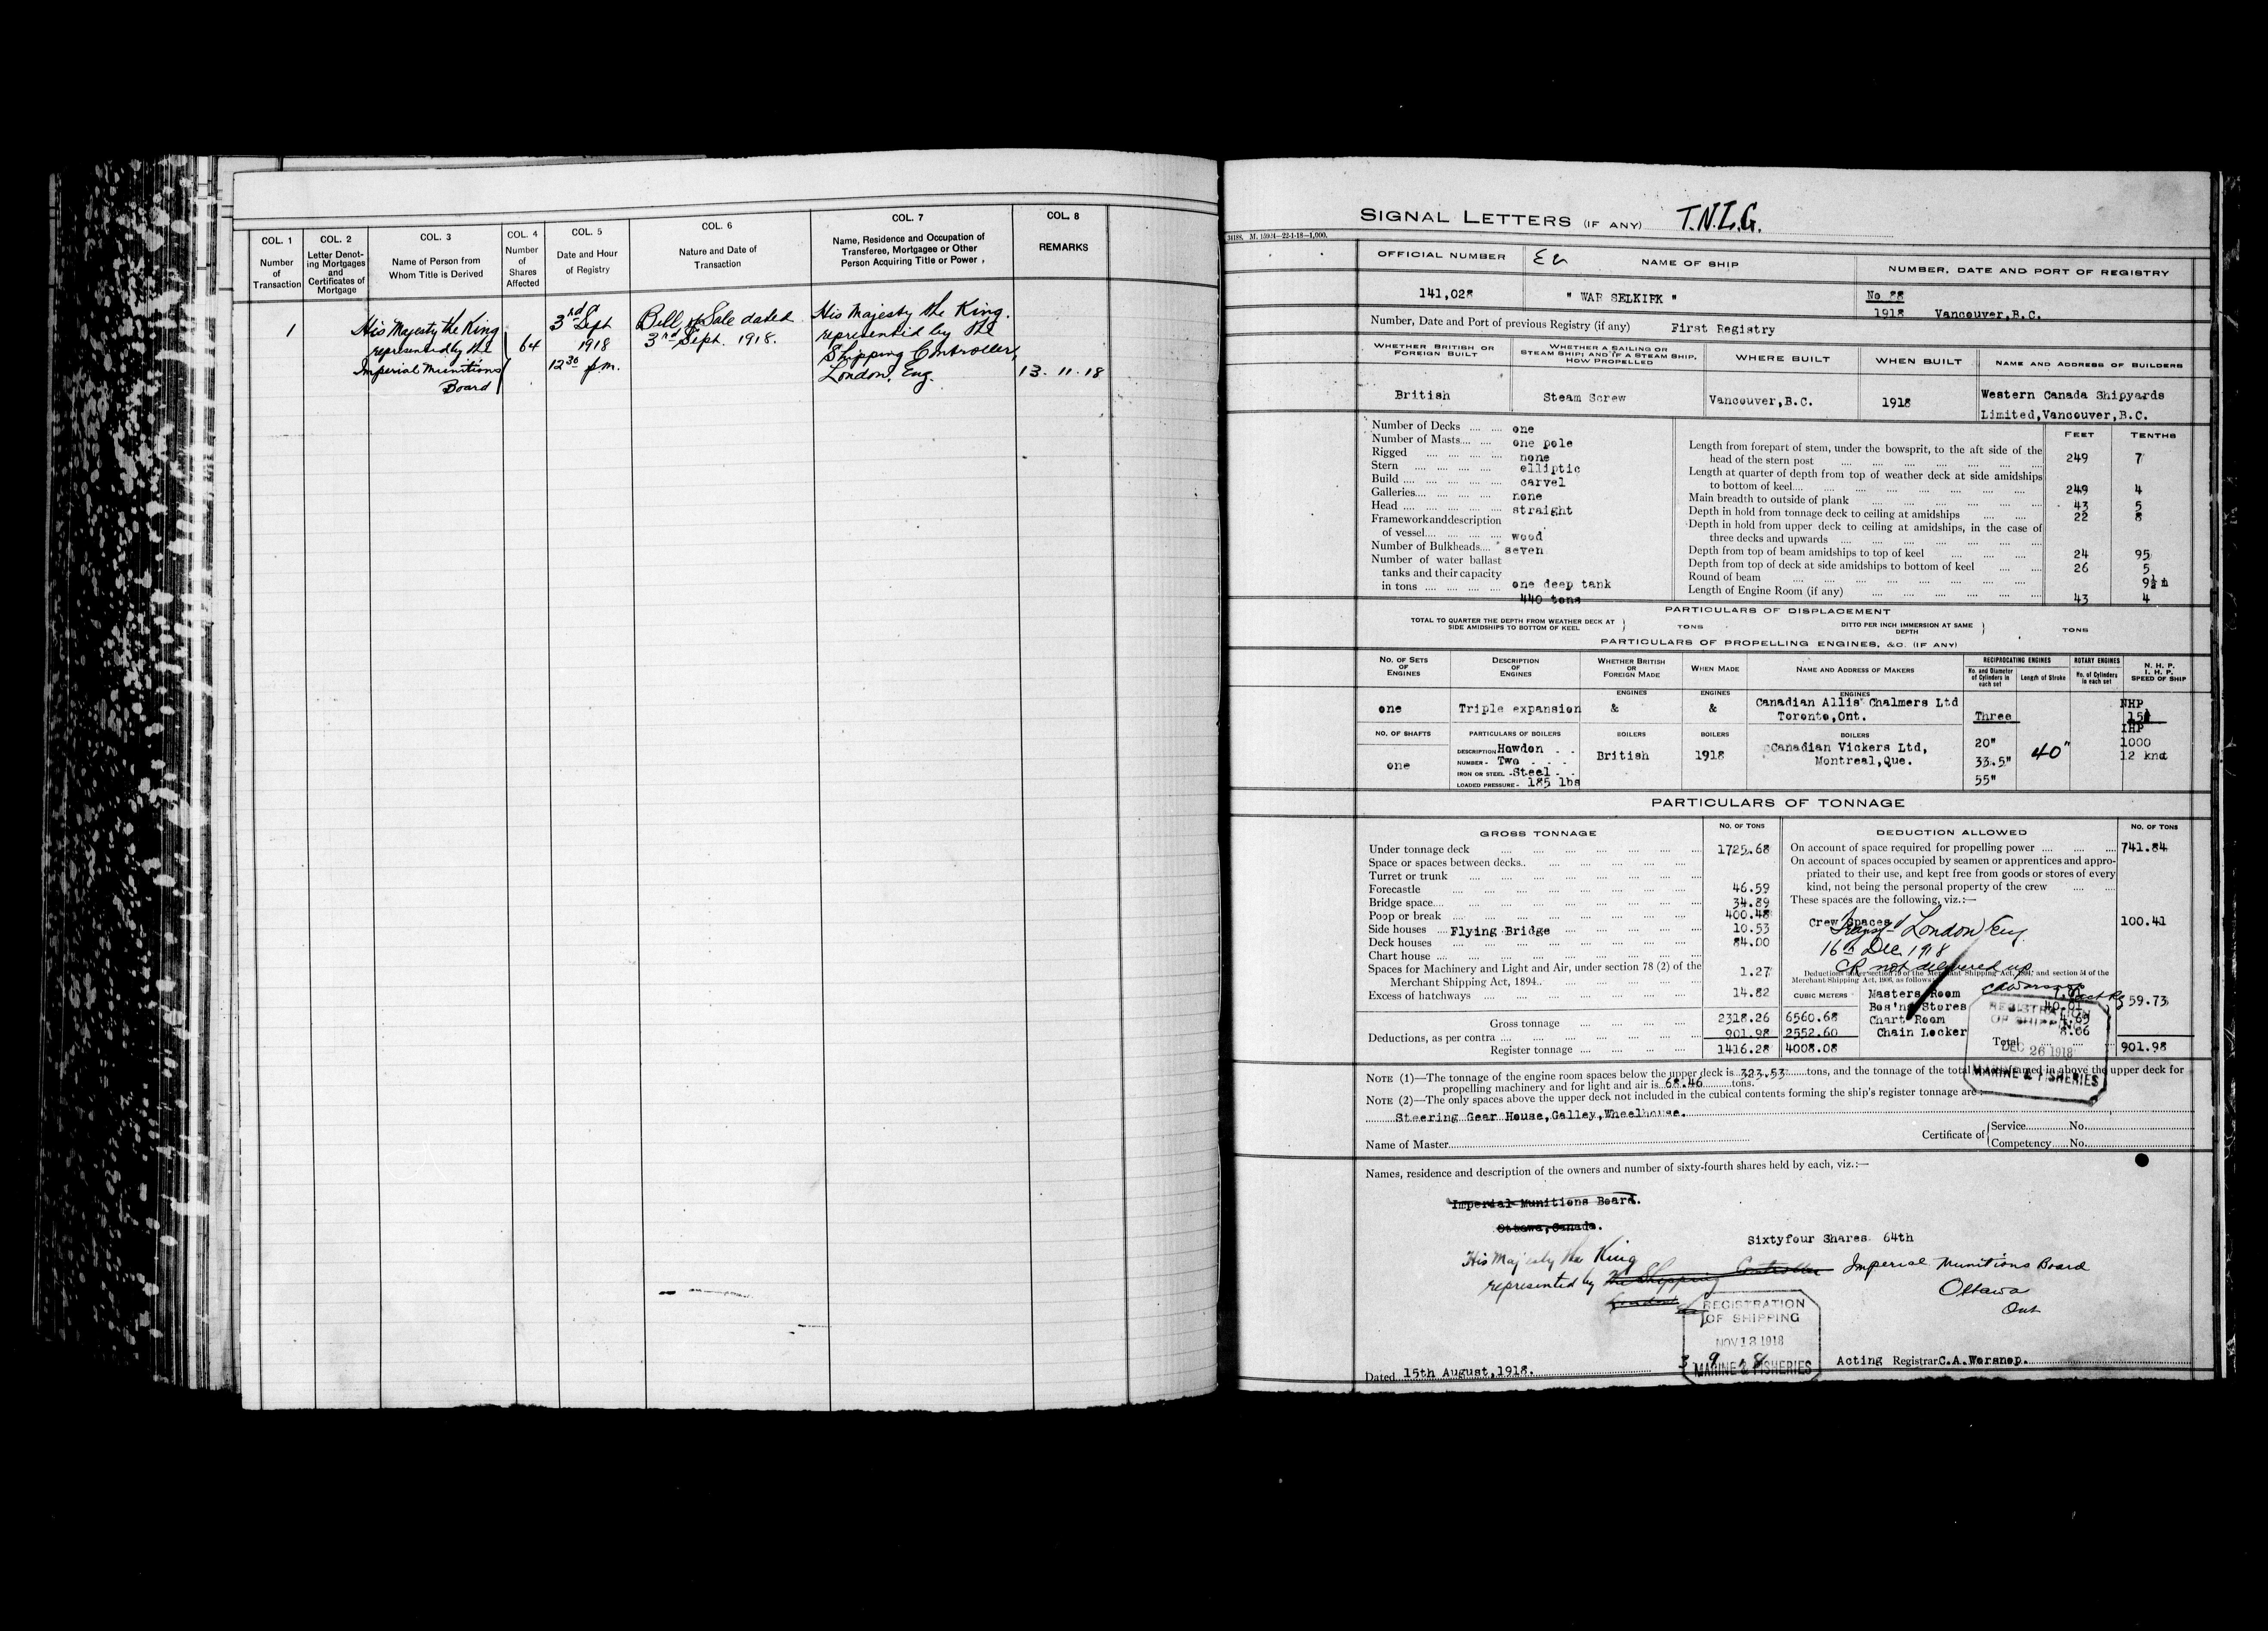 COL. 1
Number
of
Transaction
COL. 2
Letter Denot-
ing Mortgages
and
Certificates of
Mortgage
COL. 3
Name of Person from
Whom Title is Derived
COL. 4
Number
of
Shares
Affected
COL. 5
Date and Hour
of Registry
COL. 6
Nature and Date of
Transaction
COL. 7
Name, Residence and Occupation of
Transferee, Mortgagee or Other
Person Acquiring Title or Power
COL. 8
REMARKS
1
His Majesty the King
represented by the
Imperial Munitions
Board
64
3rd Sept
1918
12 30 p.m.
Bill of Sale dated
3rd Sept. 1918.
His Majesty the King.
represented by the
Shipping Controller,
London, Eng.
13. 11. 18
SIGNAL LETTERS (IF ANY) T.N.L.G.
34188. M. 15924—22-1-18—1,000.
OFFICIAL NUMBER
NAME OF SHIP
NUMBER, DATE AND PORT OF REGISTRY
141,028
" WAR SELKIRK "
No 88
1918 Vancouver,B.C.
Number, Date and Port of previous Registry (if any) First Registry
WHETHER BRITISH OR
FOREIGN BUILT
WHETHER A SAILING OR
STEAM SHIP; AND IF A STEAM SHIP,
HOW PROPELLED
WHERE BUILT
WHEN BUILT
NAME AND ADDRESS OF BUILDERS
British
Steam Screw
Vancouver,B.C.
1918
Western Canada Shipyards
Limited,Vancouver,B.C.
Number of Decks .... .... one
Number of Masts.... .... one pole
Rigged .... .... .... .... none
Stern .... .... .... .... elliptic
Build .... .... .... .... carvel
Galleries.... .... .... .... none
Head .... .... .... .... straight
Framework and description
of vessel.... .... .... .... wood
Number of Bulkheads.... seven
Number of water ballast
tanks and their capacity
in tons .... .... .... .... one deep tank
440 tons
FEET TENTHS
Length from forepart of stem, under the bowsprit, to the aft side of the
head of the stern post 249 7
Length at quarter of depth from top of weather deck at side amidships
to bottom of keel.... 249 4
Main breadth to outside of plank 43 5
Depth in hold from tonnage deck to ceiling at amidships 22 8
Depth in hold from upper deck to ceiling at amidships, in the case of
three decks and upwards
Depth from top of beam amidships to top of keel 24 95
Depth from top of deck at side amidships to bottom of keel 26 5
Round of beam 9½ in
Length of Engine Room (if any) 43 4
PARTICULARS OF DISPLACEMENT
TOTAL TO QUARTER THE DEPTH FROM WEATHER DECK AT
SIDE AMIDSHIPS TO BOTTOM OF KEEL
TONS
DITTO PER INCH IMMERSION AT SAME
DEPTH
TONS
PARTICULARS OF PROPELLING ENGINES, &C. (IF ANY)
NO. OF SETS
OF
ENGINES
DESCRIPTION
OF
ENGINES
WHETHER BRITISH
OR
FOREIGN MADE
WHEN MADE
NAME AND ADDRESS OF MAKERS
RECIPROCATING ENGINES
No. and Diameter
of Cylinders in
each set
Length of Stroke
ROTARY ENGINES
No. of Cylinders
in each set
N. H. P.
I. H. P.
SPEED OF SHIP
ENGINES
ENGINES
ENGINES
one
Triple expansion
&
&
Canadian Allis Chalmers Ltd
Toronto,Ont.
Three
NHP
IHP
1000
12 knot
NO. OF SHAFTS
PARTICULARS OF BOILERS
BOILERS
BOILERS
BOILERS
one
DESCRIPTION Howden
NUMBER - Two
IRON OR STEEL - Steel
LOADED PRESSURE - 185 lbs
British
1918
Canadian Vickers Ltd,
Montreal,Que.
20"
33.5"
55"
40"
PARTICULARS OF TONNAGE
GROSS TONNAGE
NO. OF TONS
Under tonnage deck 1725.68
Space or spaces between decks..
Turret or trunk
Forecastle 46.59
Bridge space.... 34.89
Poop or break 400.48
Side houses .... Flying Bridge 10.53
Deck houses 84.00
Chart house
Spaces for Machinery and Light and Air, under section 78 (2) of the
Merchant Shipping Act, 1894.. 1.27
Excess of hatchways 14.82
Gross tonnage 2318.26 6560.68
Deductions, as per contra 901.98 2552.60
Register tonnage 1416.28 4008.08
CUBIC METERS
DEDUCTION ALLOWED
NO. OF TONS
On account of space required for propelling power 741.84
On account of spaces occupied by seamen or apprentices and appro-
priated to their use, and kept free from goods or stores of every
kind, not being the personal property of the crew
These spaces are the following, viz.:—
Crew Spaces 100.41
London Eng.
16th Dec 1918
CR not delivered up
Deductions under section 79 of the Merchant Shipping Act, 1894, and section 54 of the
Merchant Shipping Act, 1906, as follows
Masters Room
Bos'n Stores 40.01
Chart Room 4.65
Chain Locker 8.06
59.73
Total 901.98
REGISTRATION
OF SHIPPING
DEC 26 1918
MARINE & FISHERIES
NOTE (1)—The tonnage of the engine room spaces below the upper deck is 323.53 tons, and the tonnage of the total framed in above the upper deck for
propelling machinery and for light and air is 68.46 tons.
NOTE (2)—The only spaces above the upper deck not included in the cubical contents forming the ship's register tonnage are:
Steering Gear House,Galley,Wheelhouse.
Name of Master
Certificate of
Service No.
Competency No.
Names, residence and description of the owners and number of sixty-fourth shares held by each, viz.:—
Imperial Munitions Board.
Ottawa,Canada.
Sixtyfour Shares 64th
His Majesty the King
represented by the Shipping Controller Imperial Munitions Board
London
Ottawa
Ont
REGISTRATION
OF SHIPPING
NOV 13 1918
MARINE & FISHERIES
3 9 18
Dated 15th August,1918.
Acting Registrar C.A.Worsnop.